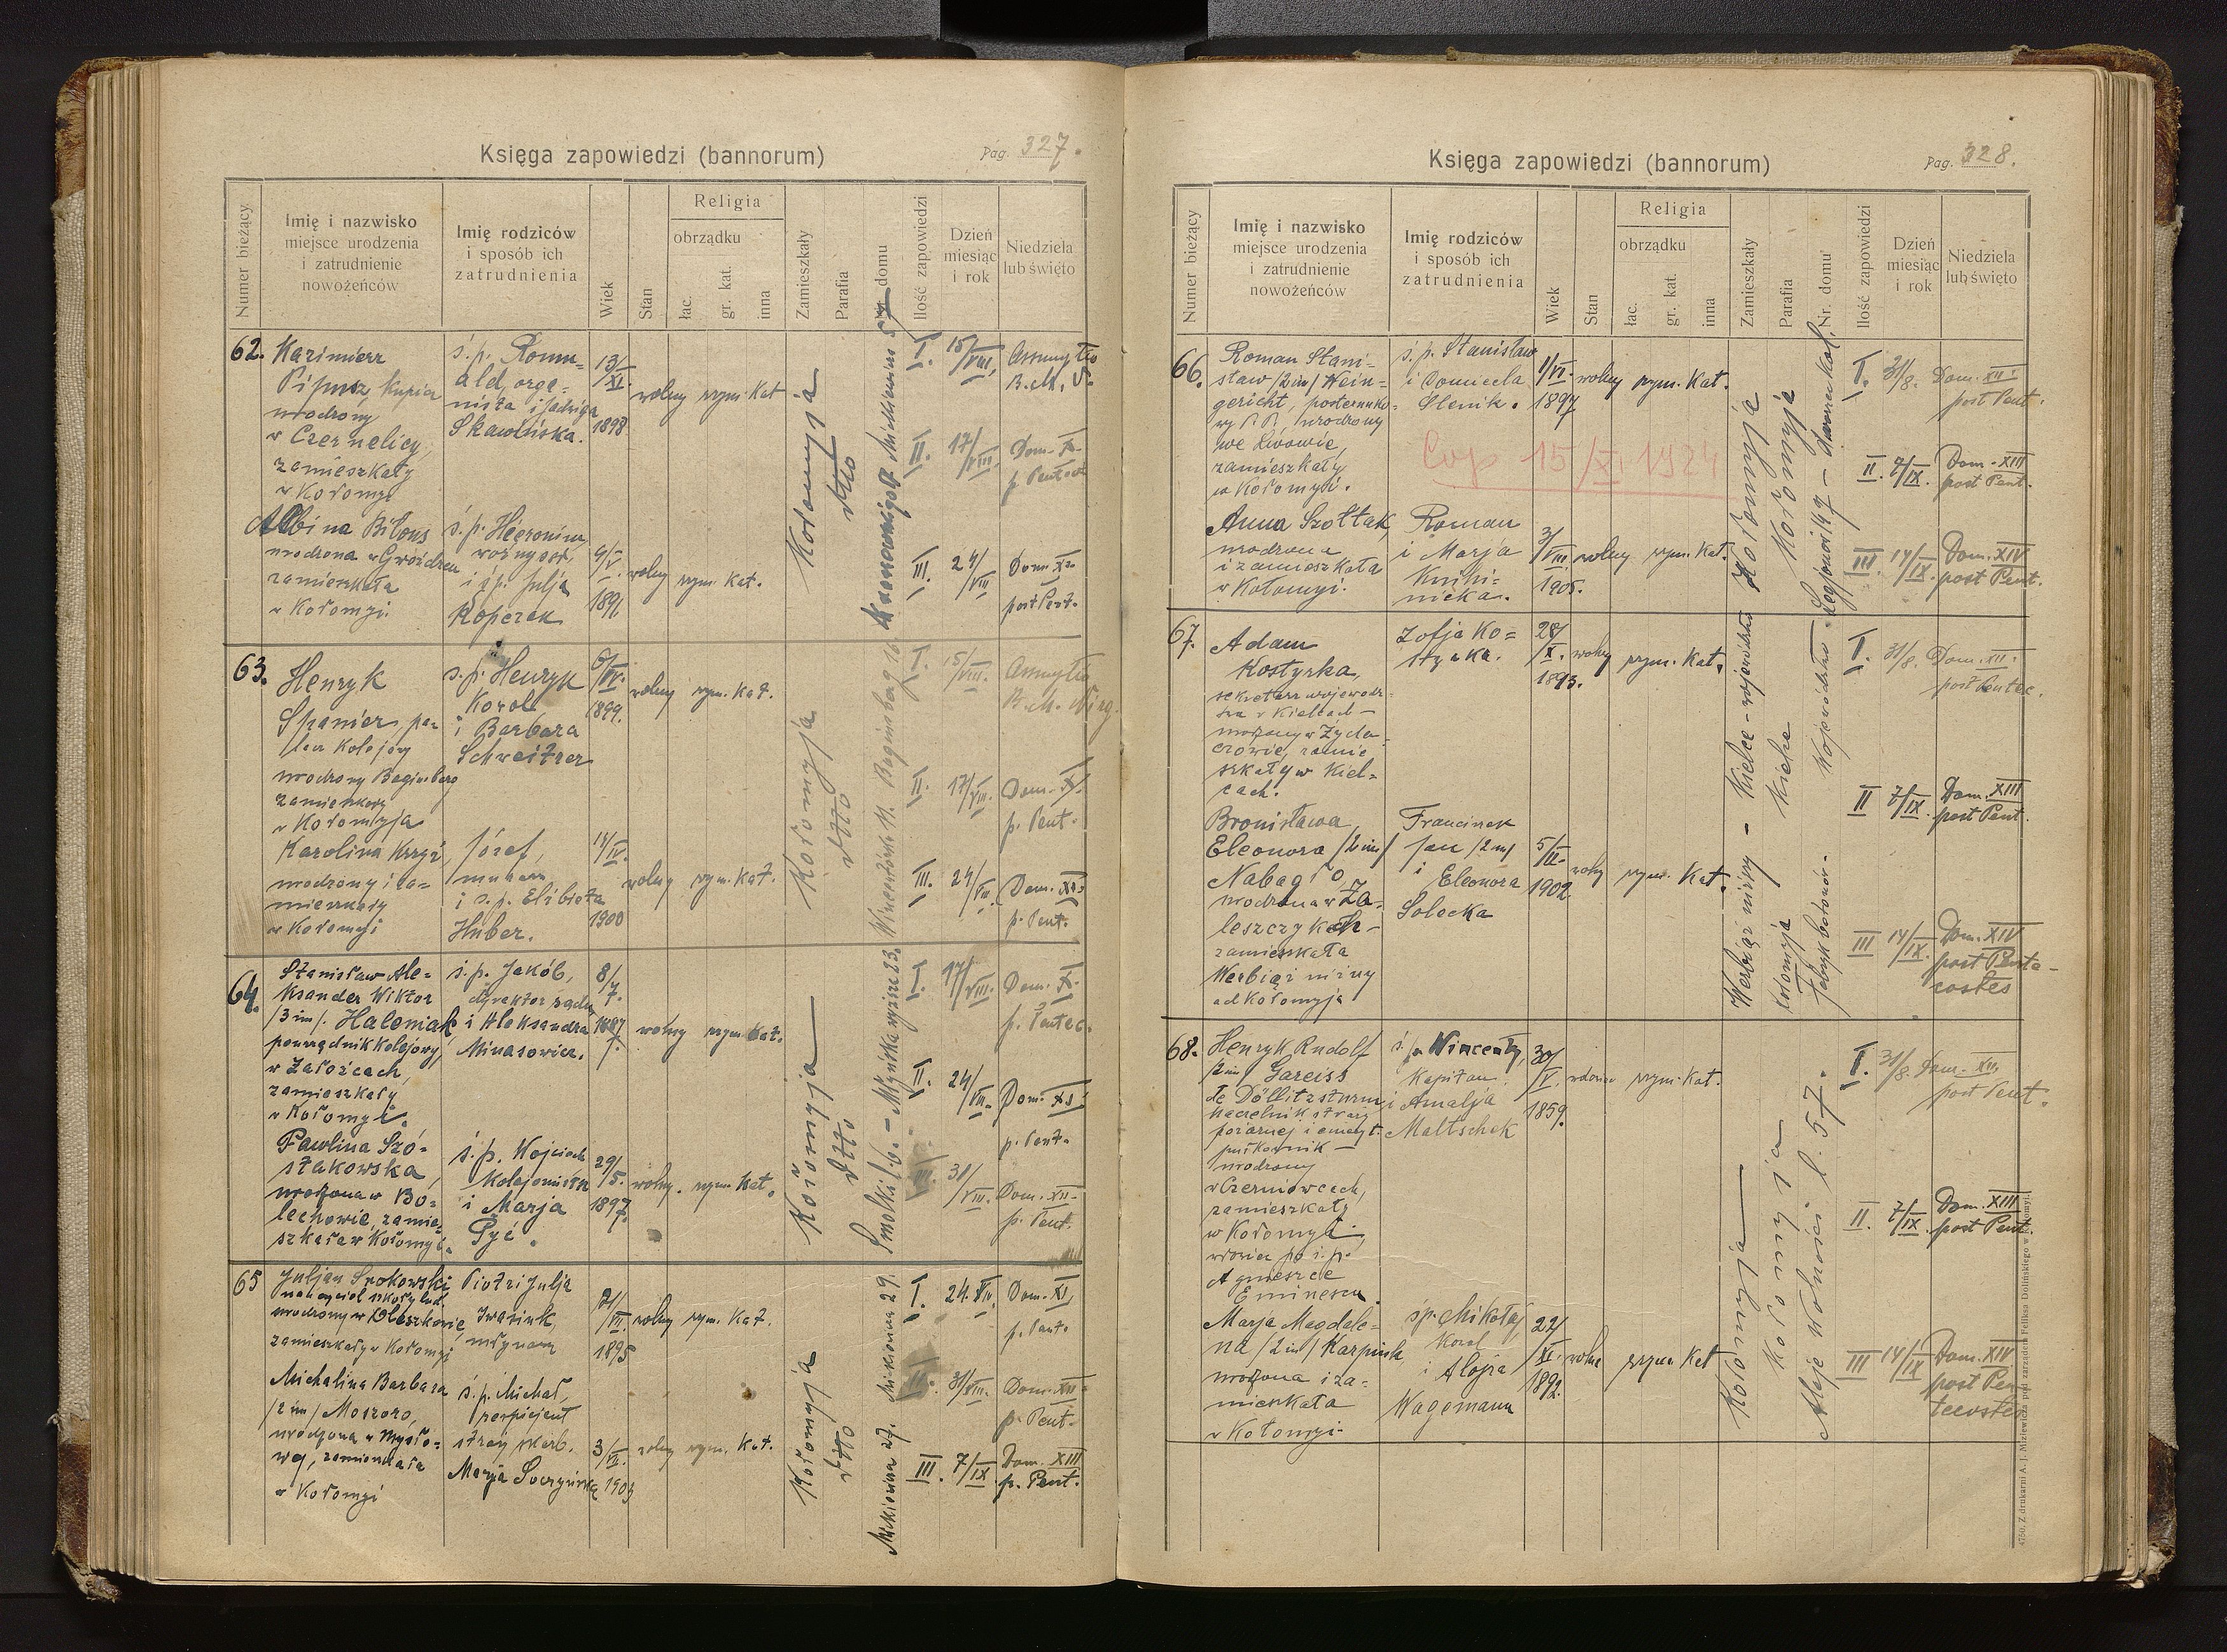 Księga zapowiedzi (bannorum)
Pag. 327.
Numer bieżący
Imię i nazwisko
miejsce urodzenia
i zatrudnienie
nowożeńców
Imię rodziców
i sposób ich
zatrudnienia
Wiek
Stan
Religia
obrządku
łac.
gr. kat.
inna
Zamieszkały
Parafia
Nr. domu
Ilość zapowiedzi
Dzień
miesiąc
i rok
Niedziela
lub święto
62.
Kazimierz
kupiec
urodzony
w Czernelicy,
zamieszkały
w Kołomyi
ś. p. Romu-
ald, orga-
nista i Jadwiga
Skawińska.
13/
XI.
1898
wolny rzym. Kat
Albina Bilous
urodzona w Gwoźdzcu
zamieszkała
w Kołomyi.
ś. p. Hieronim,
i śp. Julja
Koperzak
9/
V.
1891.
wolny rzym. Kat.
Kołomyja
dtto
I. 15/VIII.
II. 17/VIII. Dom. X.
III. 24/VIII Dom. XI.
post Pent.
63.
Henryk
Spanier,
kolejowy
urodzony Baginsberg
zamieszkały
w Kołomyja
ś. p. Henryk
Karol
i Barbara
Schweitzer
6/
IV.
1899.
wolny rzym. Kat.
Karolina Krzyż,
urodzony i za-
mieszkały
w Kołomyi
Józef,
murarz
i ś. p. Elżbieta
Huber.
1900
wolny rzym. Kat.
Kołomyja
dtto
I. 15/VIII.
II. 17/VIII. Dom. X.
p. Pent.
III. 24/VIII. Dom. XI.
p. Pent.
64.
Stanisław Ale-
ksander Wiktor
/3 im/. Haleniak
porządnik kolejowy,
w Załoźcach,
zamieszkały
w Kołomyi.
ś. p. Jakób,
dyrektor sądu
i Aleksandra
Minasowicz.
8/
7.
1887
wolny rzym Kat.
Paulina Szó-
stakowska,
urodzona w Bo-
lechowie, zamie-
szkała w Kołomyi.
ś. p. Wojciech
i Marja
Pyć.
29/
5.
1897.
wolny. rzym. Kat.
Kołomyja
dtto
I. 17/VIII. Dom. X.
p. Pentec.
II. 24/VIII. Dom. XI
p. Pent.
III. 31/VIII. Dom. XII.
p. Pent.
65
Juljan Srokowski
nauczyciel szkoły lud.
urodzony w Oleszkowie
zamieszkały w Kołomyi
Piotr i Julja
Iwasiuk,
młynarz
21/
VII.
1895
wolny rzym. Kat.
Michalina Barbara
/2 im/ Moszoro,
zamieszkała
w Kołomyi
ś. p. Michał,
respicjent
straży skarb.
Marja
3/
1903
wolny rzym. Kat.
Kołomyja
dtto
I. 24. VIII. Dom. XI,
p. Pent.
II. 31/VIII. Dom. XII.
p. Pent.
III. 7/IX. Dom. XIII
p. Pent.
Księga zapowiedzi (bannorum)
Pag. 328.
Numer bieżący
Imię i nazwisko
miejsce urodzenia
i zatrudnienie
nowożeńców
Imię rodziców
i sposób ich
zatrudnienia
Wiek
Stan
Religia
obrządku
łac.
gr. kat.
inna
Zamieszkały
Parafia
Nr. domu
Ilość zapowiedzi
Dzień
miesiąc
i rok
Niedziela
lub święto
66.
Roman Stani-
sław /2 im/ Wein-
gericht, posterunko-
wy P. P., urodzony
we Lwowie,
zamieszkały
w Kołomyi.
ś. p. Stanisław
i Domicela
Slenik.
1/VI.
1897
wolny rzym. Kat.
Cop 15/XI 1924
Anna Szołtak,
urodzona
i zamieszkała
w Kołomyi.
Roman
i Marja
Knihi-
nicka.
3/
VIII
1905.
wolny rzym. Kat.
Kołomyja
Kołomyja
Legjonów 47
I. 31/8. Dom. XII.
post Pent.
II. 7/IX. Dom. XIII
post Pent.
III. 14/IX. Dom. XIV
post Pent.
67.
Adam
Kostyrka,
sekretarz wojewódz-
twa w Kielcach —
urodzony w Żyda-
czowie, zamie-
szkały w Kiel-
cach.
Zofja Ko-
styrka.
28/
X.
1893.
wolny rzym. Kat.
Bronisława
Eleonora /2 im/
Nabagło
urodzona w Za-
leszczykach —
zamieszkała
Werbiąż niżny
ad Kołomyja
Franciszek
Jan /2 im/
i Eleonora
Solecka
5/
II.
1902
wolny rzym. Kat.
Werbiąż niżny — Kielce - województwo
Kołomyja Kielce
Województwo
I. 31/8. Dom. XII.
post Pentec.
II 7/IX. Dom. XIII
post Pent.
III 14/IX. Dom. XIV
post Pente-
costes
68.
Henryk Rudolf
/2 im/ Gareiss
de Döllitzsturm
naczelnik straży
pożarnej i emeryt.
pułkownik —
urodzony
w Czerniowcach,
zamieszkały
w Kołomyi,
wdowiec po ś. p.
Agnieszce
Eminescu.
ś. p. Wincenty,
Kapitan
i Amalja
Maltschek
30/
V.
1859.
wdowiec rzym. Kat.
Marja Magdale-
na /2 im/ Karpiuk,
urodzona i za-
mieszkała
w Kołomyi.
śp. Mikołaj
i Alojza
Wagemann
22/
XI.
1892.
wolna rzym. Kat
Kołomyja
Kołomyja
Aleje Wolności l. 57.
I. 31/8. Dom. XII
post Pent.
II. 7/IX. Dom. XIII
post Pent.
III 14/IX Dom. XIV
post Pen-
tecostes